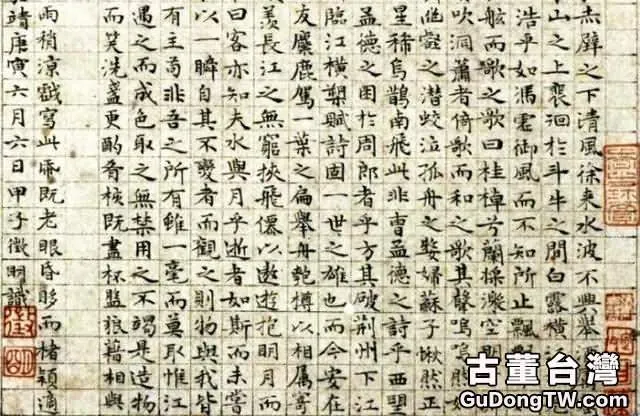 赤壁之下清風徐来水波不興舉酒
山之上裵徊於斗牛之間白露橫江
浩乎如馮虗御風而不知所止飄飄
舷而歌之歌曰桂棹兮蘭槳擊空明
吹洞蕭者倚歌而和之其聲嗚嗚然
幽壑之潛蛟泣孤舟之嫠婦蘇子愀然正
星稀烏鵲南飛此非曹孟德之詩乎西朢
孟德之困於周郎者乎方其破荆州下江
臨江橫槊賦詩固一世之雄也而今安在
友麋鹿駕一葉之扁舉舟匏樽以相属寄
羨長江之無窮挾飛僊以遨遊抱明月而
曰客亦知夫水與月乎逝者如斯而未嘗
以一瞬自其不變者而觀之則物與我皆
有主苟非吾之所有雖一毫而莫取惟江
遇之而成色取之無禁用之不竭是造物
而笑洗盞更酌肴核既盡杯盤狼藉相與
雨稍涼戲寫此紙既老眼昏眵而楮穎適
靖庚寅六月六日甲子徵明識
古董台灣
GuDongTw.COM